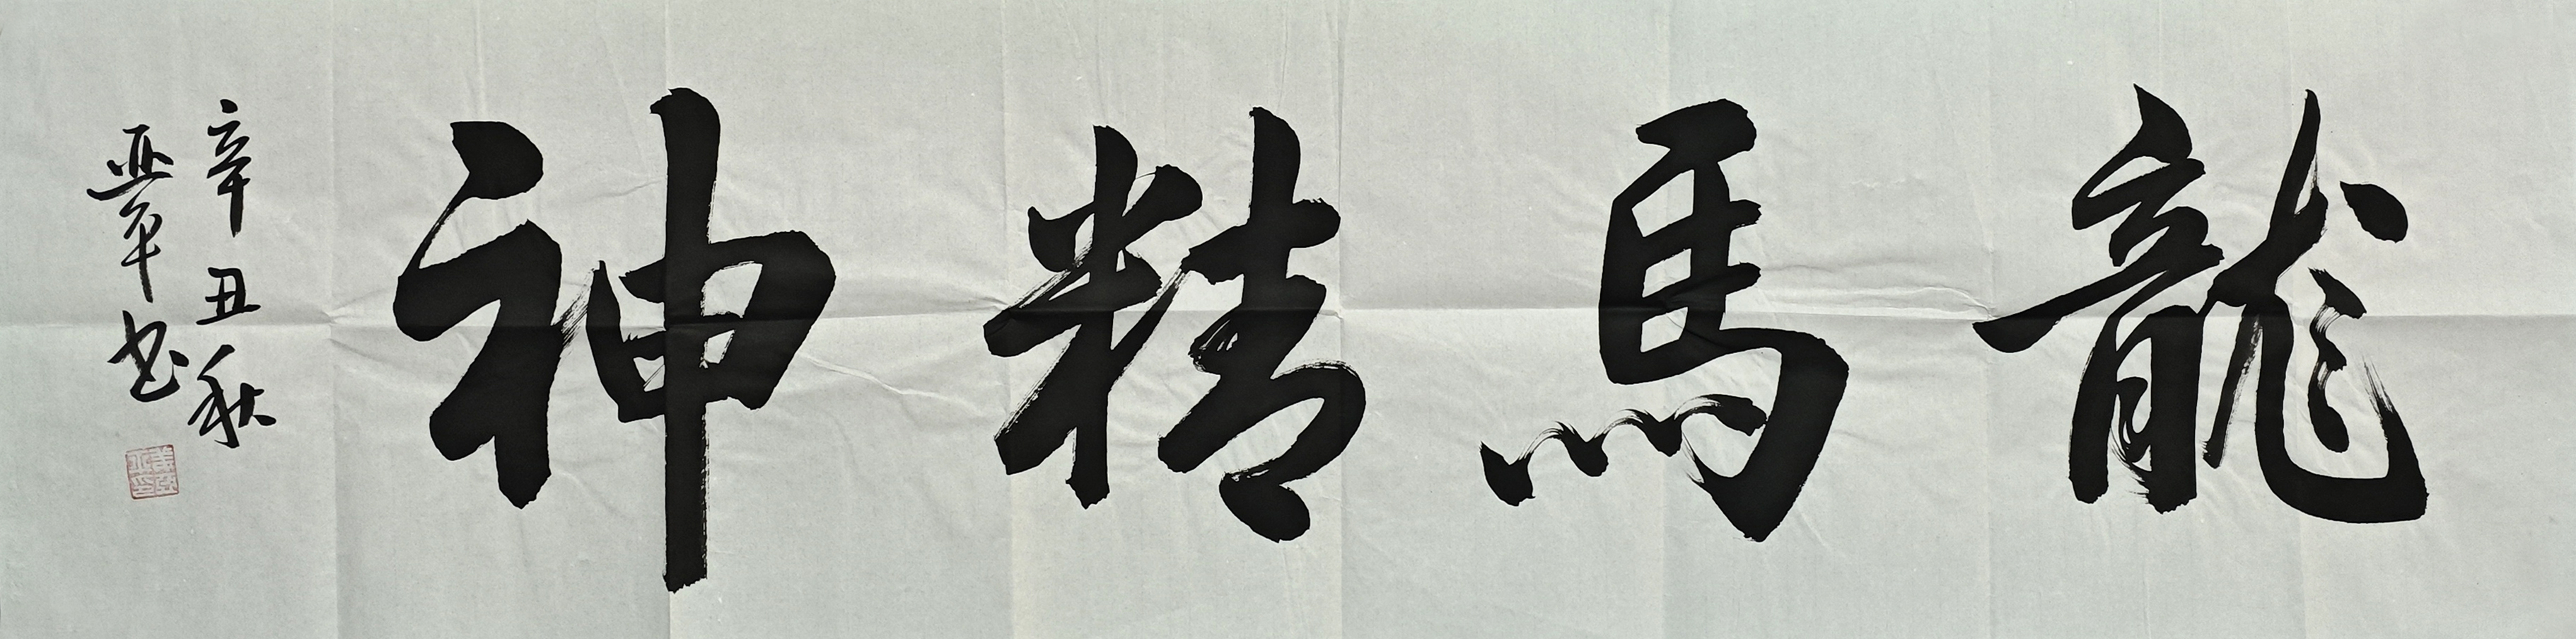 龍馬精神
辛丑秋
亚平书